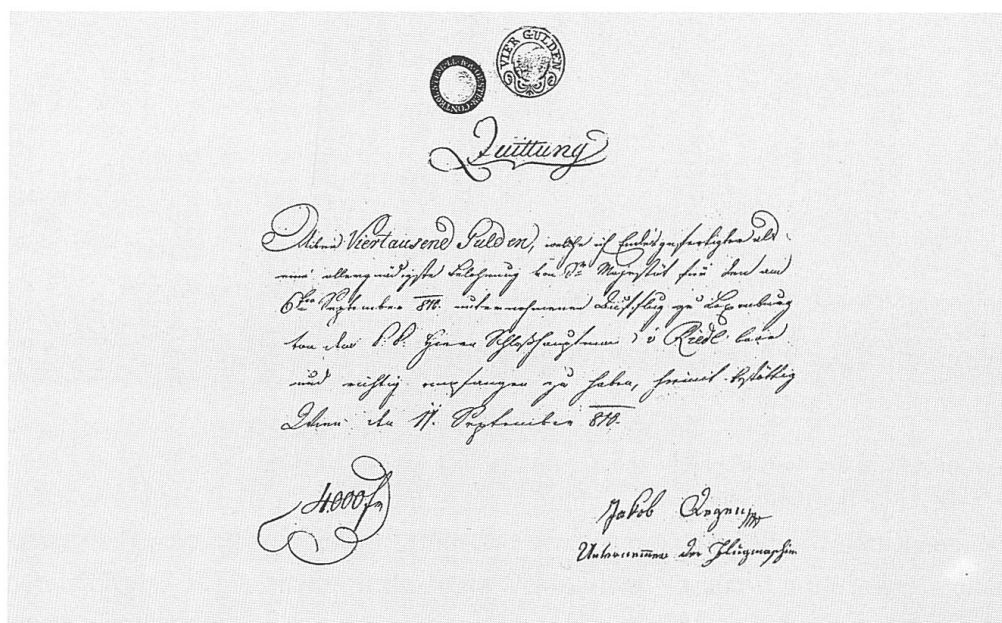 VIER GULDEN
Quittung
Über Viertausend Gulden, welche ich Endesgefertigter als
eine allergnädigste Belohnung von Sr Majestät für den am
6ten September 810. unternommenen Luftflug zu Laxenburg
von dem k. k. Herrn Schloßhauptmann v Riedl baar
und richtig empfangen zu haben, hiemit bestättig
Wien den 17. September 810.
4000 f
Jakob Degen
Unternemmer der Flugmaschin